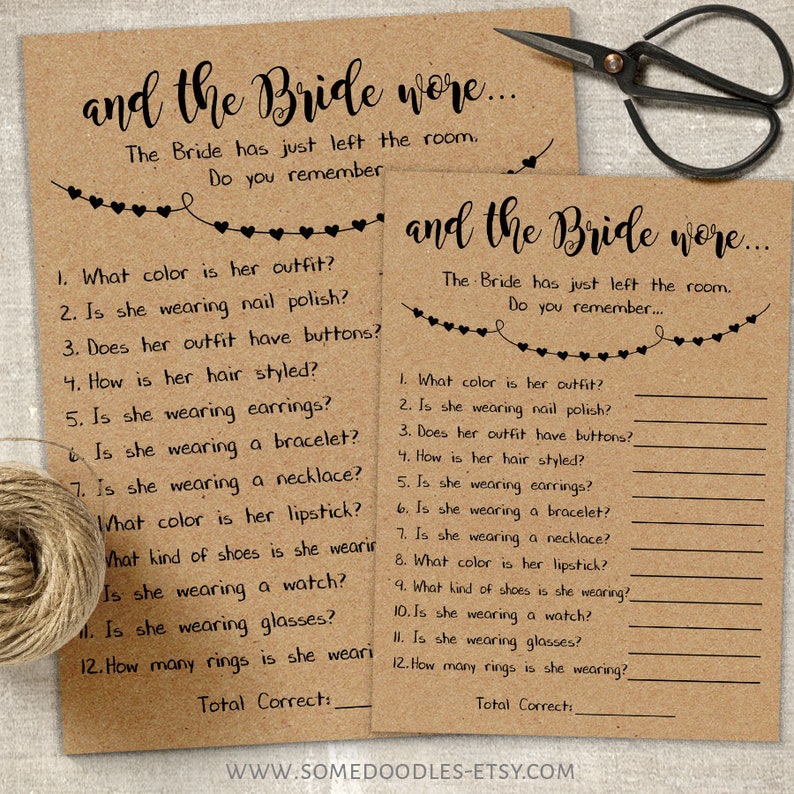 and the Bride wore...
The Bride has just left the room.
Do you remember
1. What color is her outfit?
2. Is she wearing nail polish?
3. Does her outfit have buttons?
4. How is her hair styled?
5. Is she wearing earrings?
6. Is she wearing a bracelet?
7. Is she wearing a necklace?
What color is her lipstick?
What kind of shoes is she wearin
Is she wearing a watch?
11. Is she wearing glasses?
12. How many rings is she weari
Total Correct:
and the Bride wore...
The Bride has just left the room.
Do you remember...
1. What color is her outfit?
2. Is she wearing nail polish?
3. Does her outfit have buttons?
4. How is her hair styled?
5. Is she wearing earrings?
6. Is she wearing a bracelet?
7. Is she wearing a necklace?
8. What color is her lipstick?
9. What kind of shoes is she wearing?
10. Is she wearing a watch?
11. Is she wearing glasses?
12. How many rings is she wearing?
Total Correct:
WWW.SOMEDOODLES-ETSY.COM